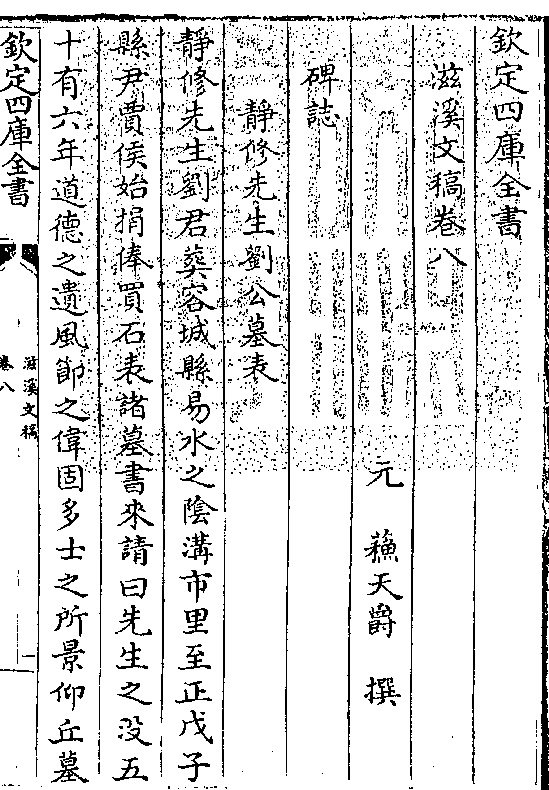 欽定四庫全書
滋溪文稿卷八
元 蘓天爵 撰
碑誌
靜修先生劉公墓表
靜修先生劉君葬容城縣易水之陰溝市里至正戊子
縣尹賈侯始捐俸買石表諸墓書來請曰先生之没五
十有六年道德之遺風節之偉固多士之所景仰丘墓
欽定四庫全書
滋溪文稿
卷八
一